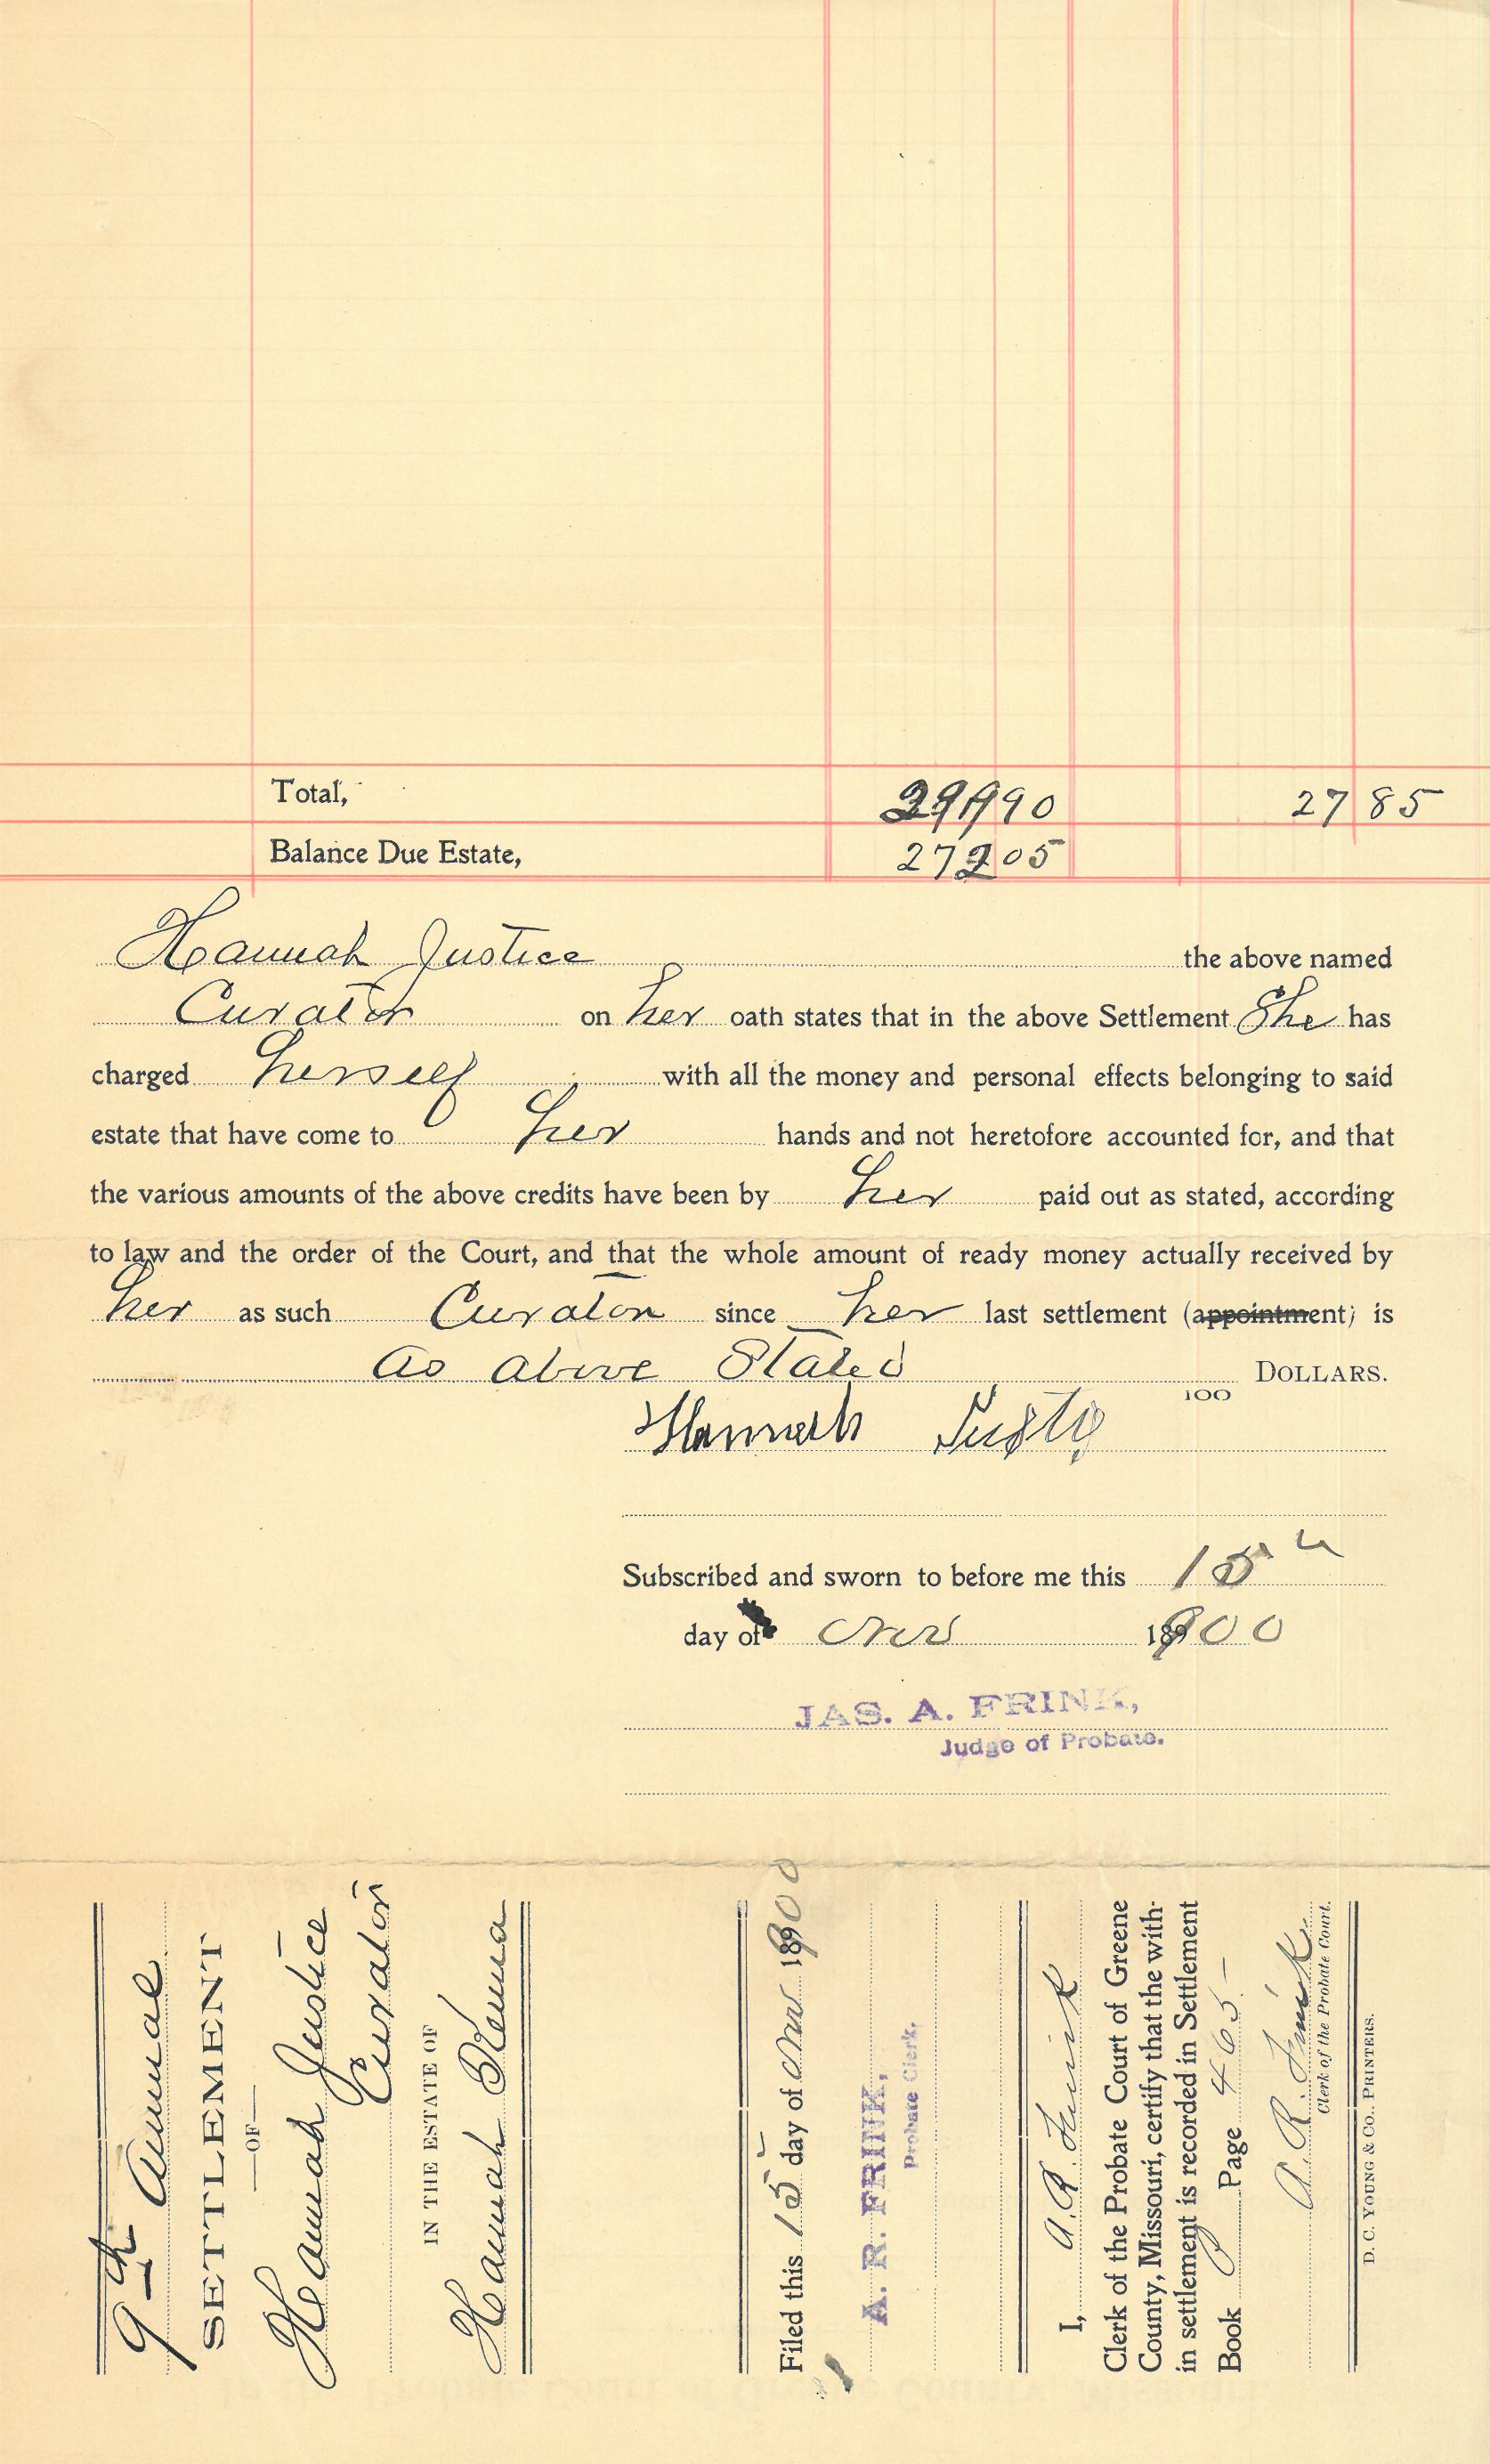 Total, 299 90 27 85
Balance Due Estate, 272 05
Hannah Justice the above named
Curator on her oath states that in the above Settlement She has
charged herself with all the money and personal effects belonging to said
estate that have come to her hands and not heretofore accounted for, and that
the various amounts of the above credits have been by her paid out as stated, according
to law and the order of the Court, and that the whole amount of ready money actually received by
her as such Curator since her last settlement (appointment) is
as above Stated DOLLARS.
100
Hannah
Subscribed and sworn to before me this 15th
day of Nov 1900
JAS. A. FRINK,
Judge of Probate.
9th Annual
SETTLEMENT
—OF—
Hannah Justice
Curator
IN THE ESTATE OF
Hannah
Filed this 15 day of Nov 1900
A. R. FRINK,
Probate Clerk.
I, A. R. Frink
Clerk of the Probate Court of Greene
County, Missouri, certify that the with-
in settlement is recorded in Settlement
Book Page 465
A. R. Frink
Clerk of the Probate Court.
D. C. YOUNG & CO., PRINTERS.